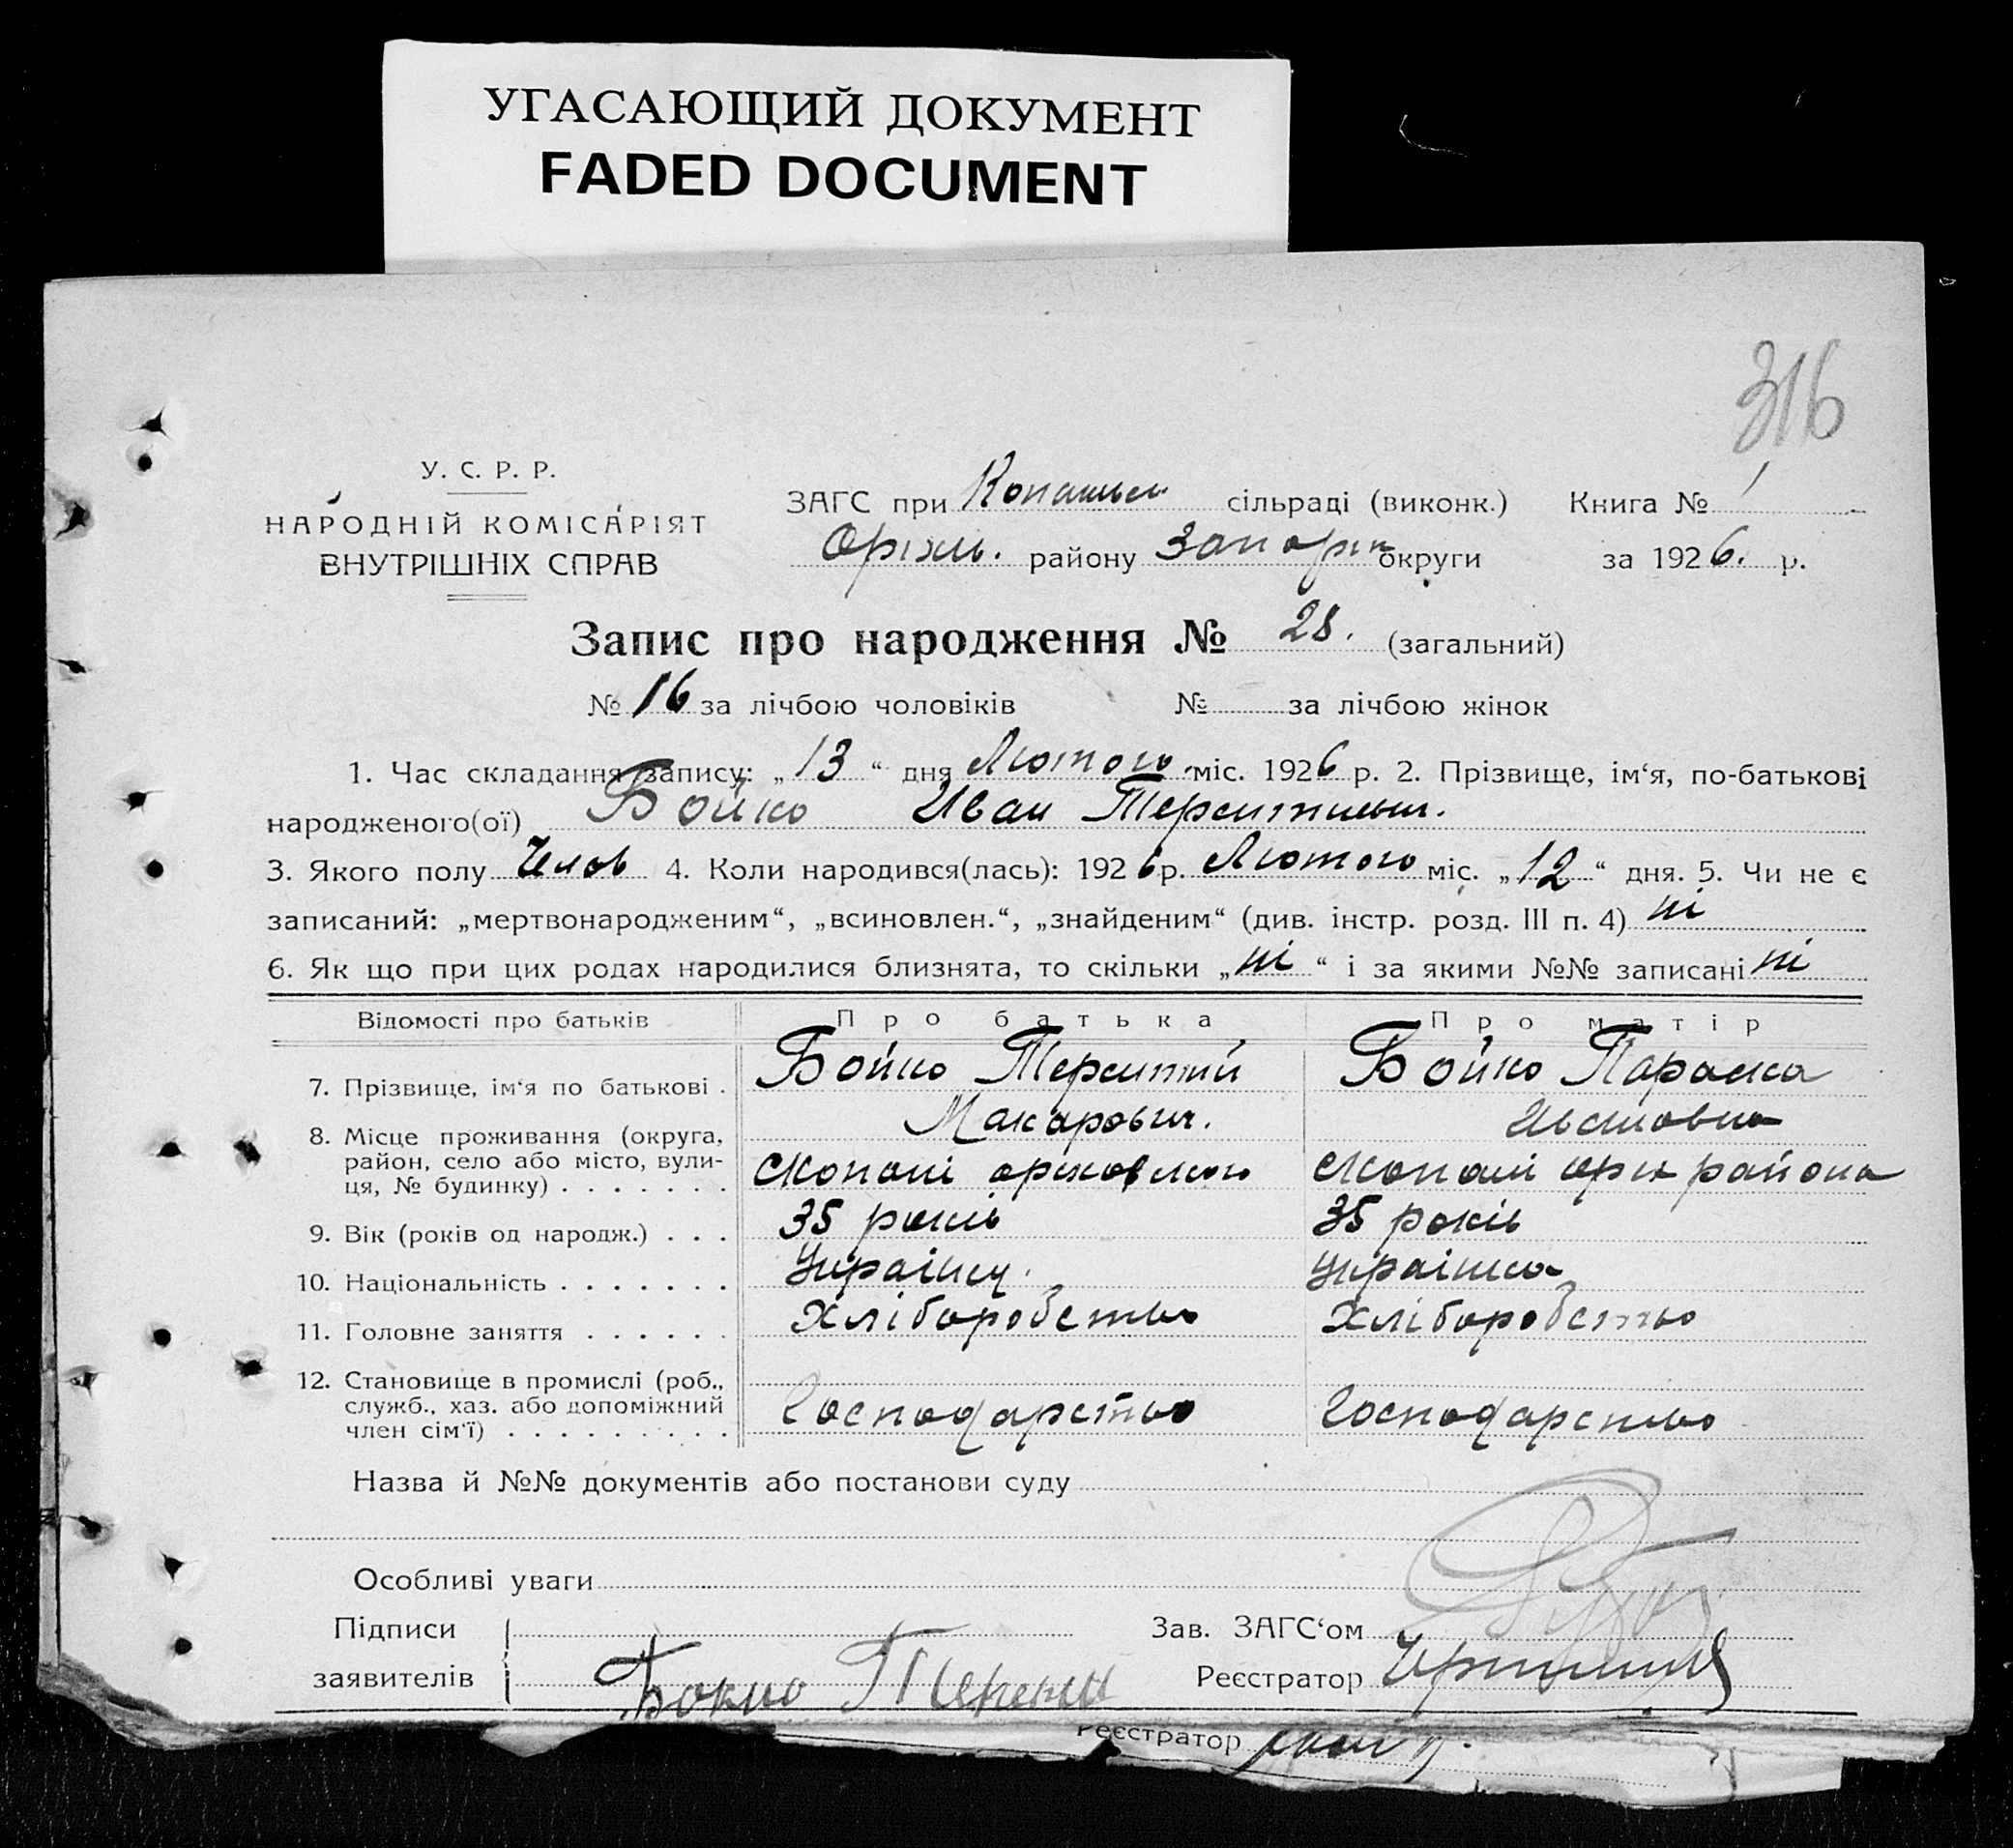 УГАСАЮЩИЙ ДОКУМЕНТ
FADED DOCUMENT
316
У. С. Р. Р.
НАРОДНІЙ КОМІСАРІЯТ
ВНУТРІШНІХ СПРАВ
ЗАГС при сільраді (виконк.) Книга № 1
Оріхів. району Запоріж округи за 1926. р.
Запис про народження № 28. (загальний)
№ 16 за лічбою чоловіків № за лічбою жінок
1. Час складання запису: „13“ дня Лютого міс. 1926 р. 2. Прізвище, ім‘я, по-батькові
народженого(ої) Бойко Иван Терентиевич.
3. Якого полу Челов 4. Коли народився(лась): 1926 р. Лютого міс. „12“ дня. 5. Чи не є
записаний: „мертвонародженим“, „всиновлен.“, „знайденим“ (див. інстр. розд. III п. 4) ні
6. Як що при цих родах народилися близнята, то скільки „ні“ і за якими №№ записані ні
Відомості про батьків Про батька Про матір
7. Прізвище, ім‘я по батькові . Бойко Терентий Бойко Параска
Макарович. Ивановна
8. Місце проживання (округа,
район, село або місто, вули-
ця, № будинку) . . . . . . . Скопані Скопані оріх района
9. Вік (років од народж.) . . . 35 років 35 років
10. Національність . . . . . . . Україну. Українка
11. Головне заняття . . . . . . Хліборобство Хліборобство
12. Становище в промислі (роб.,
служб., хаз. або допоміжний
член сім‘ї) . . . . . . . . . Господарство Господарство
Назва й №№ документів або постанови суду
Особливі уваги
Підписи Зав. ЗАГС‘ом
заявителів Бойко Терени Реєстратор
Реєстратор